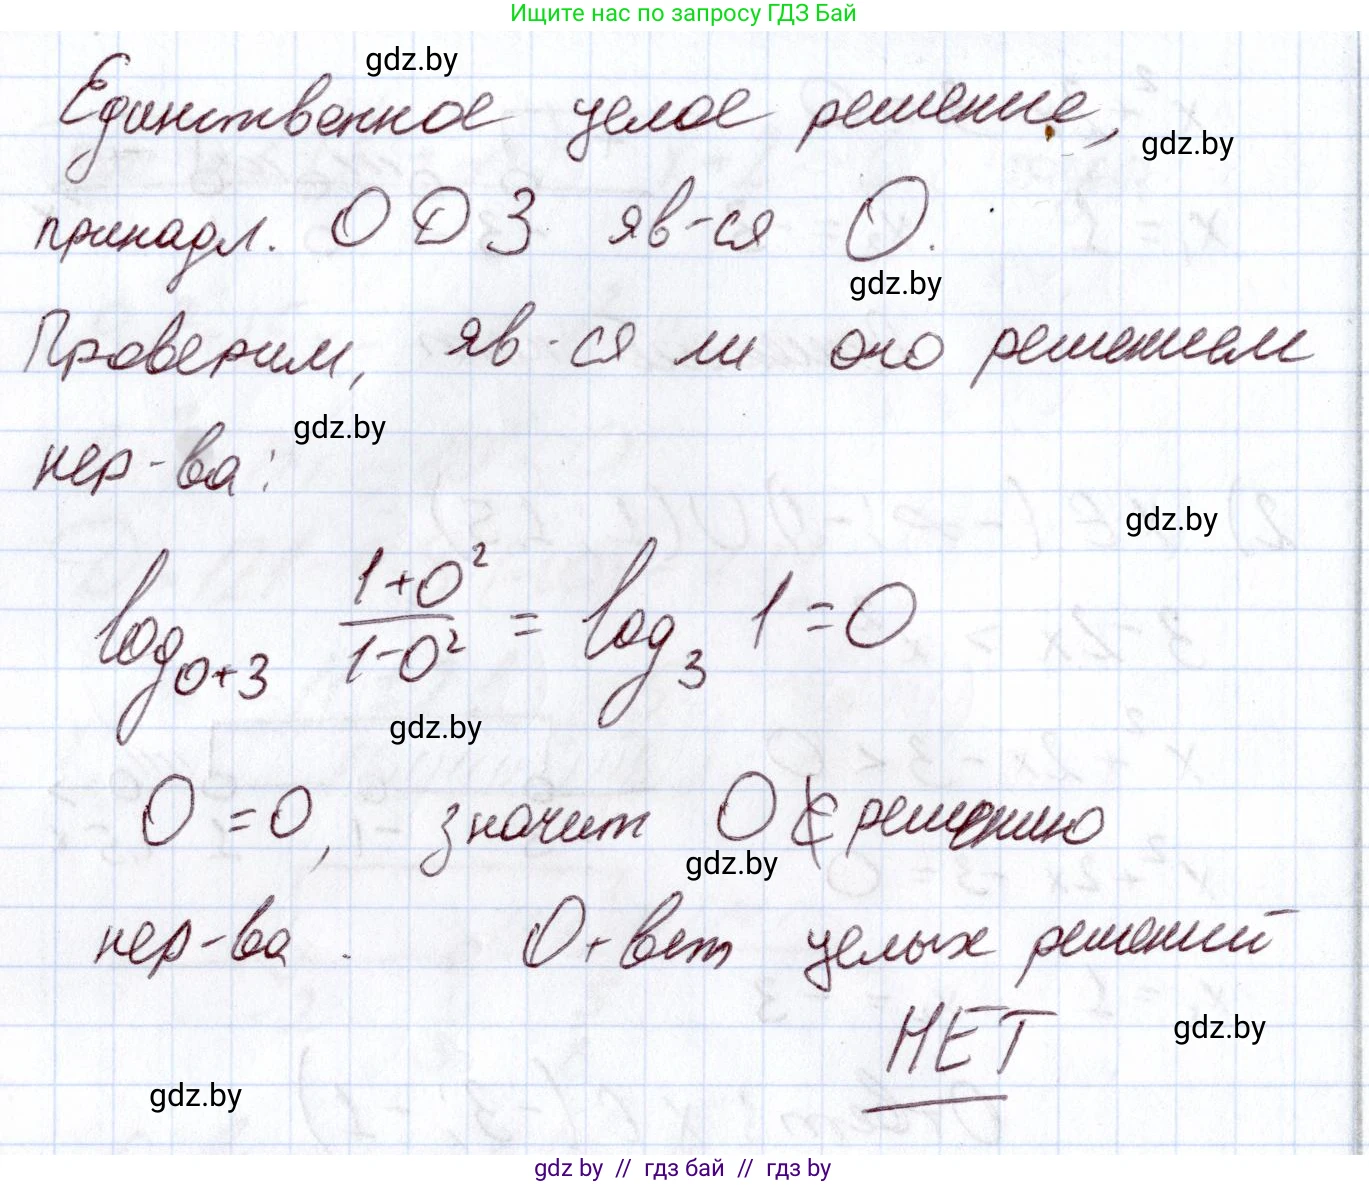 Ищите нас по запросу ГДЗ Бай
gdz.by
Единственное целое решение,
gdz.by
принадл. ОДЗ яв-ся 0.
gdz.by
Проверим, яв-ся ли оно решением
gdz.by
нер-ва:
gdz.by
log₀₊₃ (1+0²)/(1-0²) = log₃ 1 = 0
gdz.by
0 = 0, значит 0 ∉ решению
gdz.by
нер-ва. Ответ целых решений
НЕТ
gdz.by
gdz.by
gdz by // гдз бай // гдз by